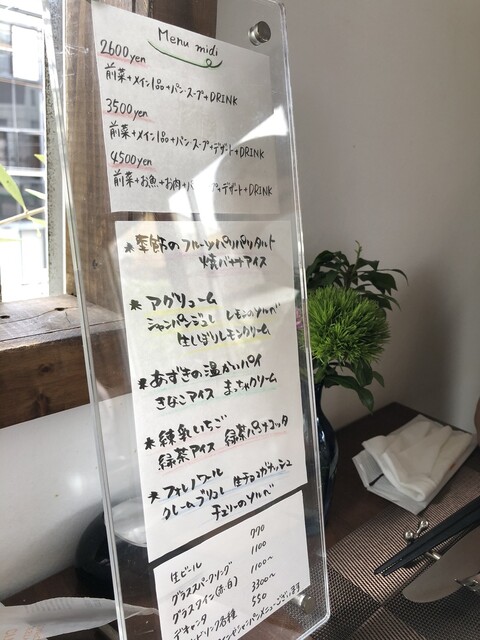 Menu midi
2600yen
前菜+メイン1品+パン・スープ+DRINK
3500yen
前菜+メイン1品+パン・スープ+デザート+DRINK
4500yen
前菜+お魚+お肉+パ プ+デザート+DRINK
*季節のフルーツパリパリタルト
焼バナナアイス
*アグリューム
シャンパンジュレ レモンのソルベ
生しぼりレモンクリーム
*あずきの温かいパイ
きなこアイス まっちゃクリーム
*練乳いちご
緑茶アイス 緑茶パンナコッタ
*フォレノワール
クレームブリュレ 生チョコガナッシュ
チェリーのソルベ
生ビール 770
グラススパークリング 1100
グラスワイン(赤,白) 1100〜
デキャンタ 3300〜
ドリンク各種 550
シャンパンメニューございます